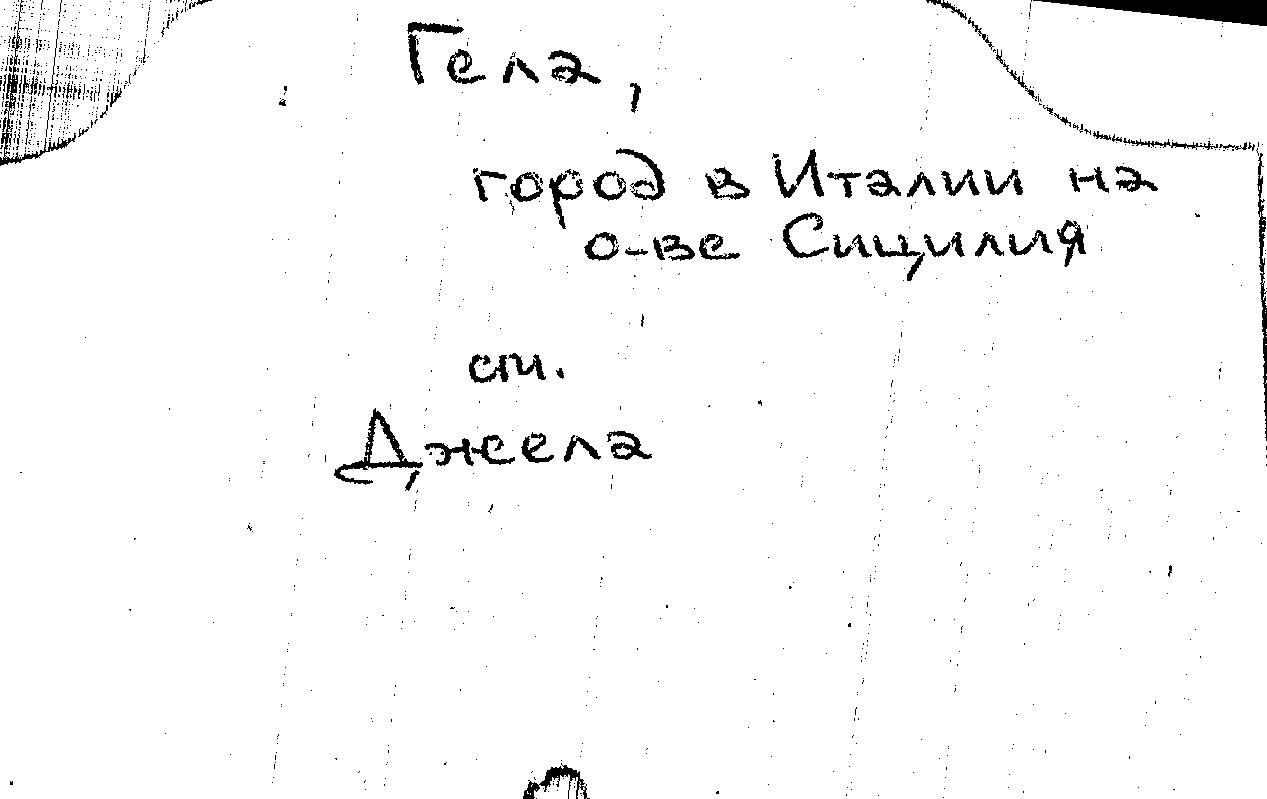 Гела,
город в Италии на
о-ве Сицилия
см.
Джела